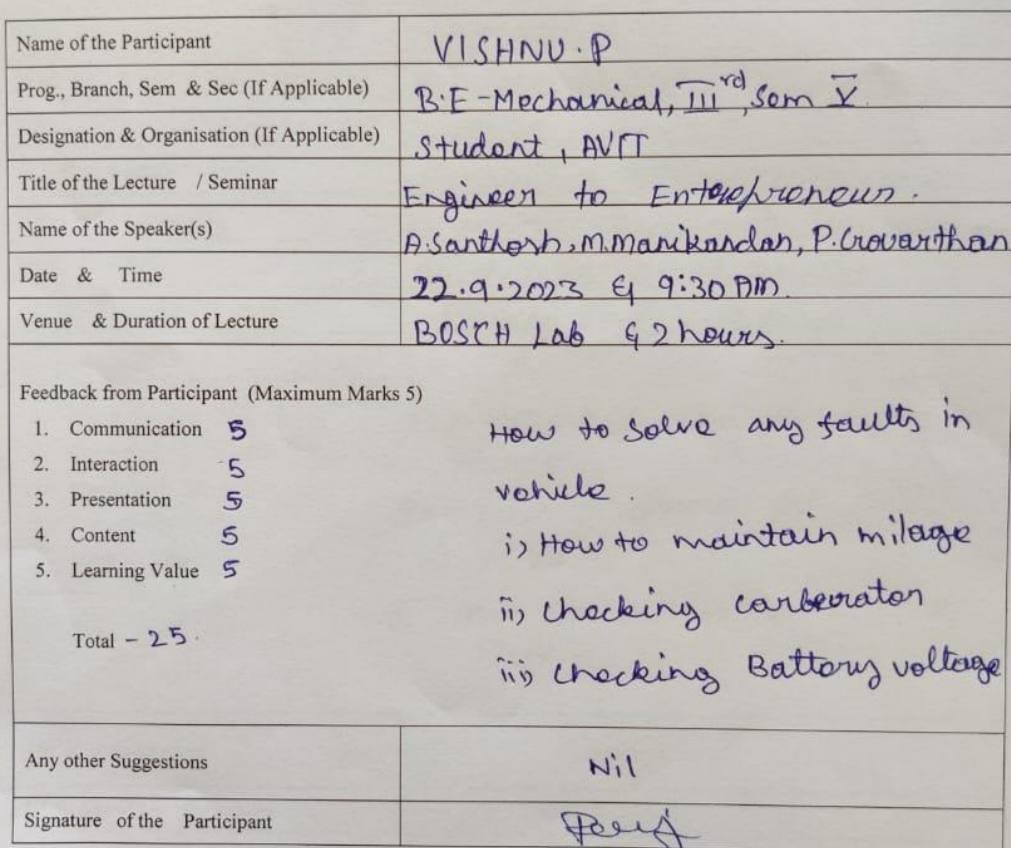 Name of the Participant VISHNU.P
Prog., Branch, Sem & Sec (If Applicable) B.E-Mechanical, IIIrd, Sem V
Designation & Organisation (If Applicable) Student, AVIT
Title of the Lecture / Seminar Engineer to Enterepreneur.
Name of the Speaker(s) A.Santhosh, M.Manikandan, P.Govarthan
Date & Time 22.9.2023 & 9:30 AM.
Venue & Duration of Lecture BOSCH Lab & 2 hours.
Feedback from Participant (Maximum Marks 5)
1. Communication 5
2. Interaction 5
3. Presentation 5
4. Content 5
5. Learning Value 5
Total - 25.
How to solve any faults in
vehicle.
i) How to maintain milage
ii) checking carberator
iii) checking Battery voltage
Any other Suggestions Nil
Signature of the Participant